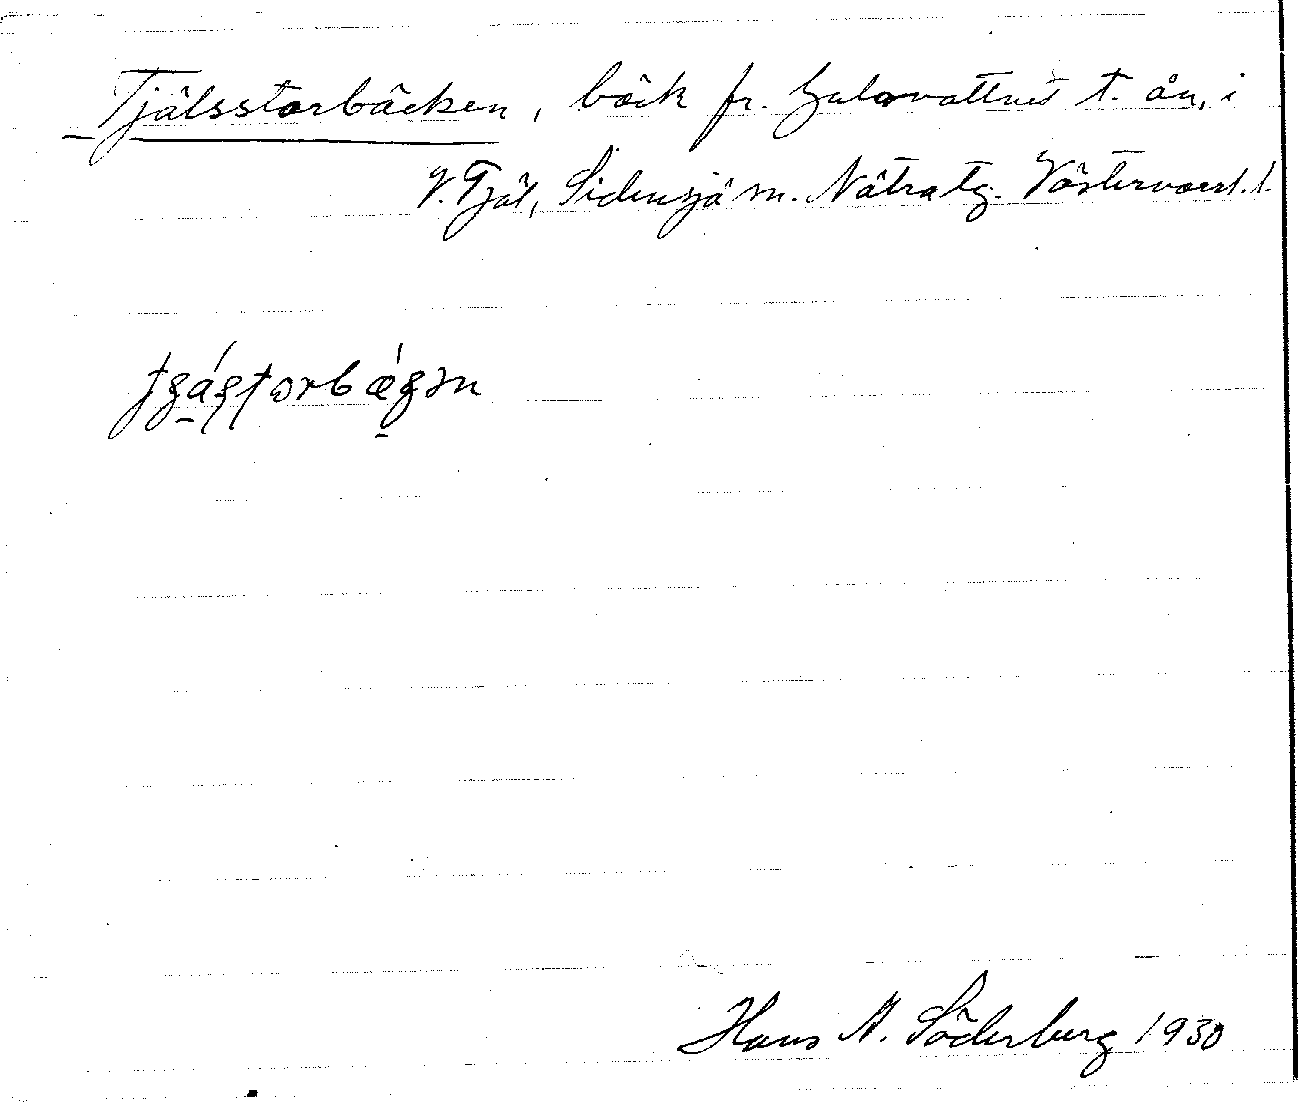 Tjälsstorbäcken, bäck fr. Gulavattnet t. ån, i
V. Tjäl, Sidensjö sn. Nätra tg. Västernorrl. l.
Hans A. Söderberg 1930